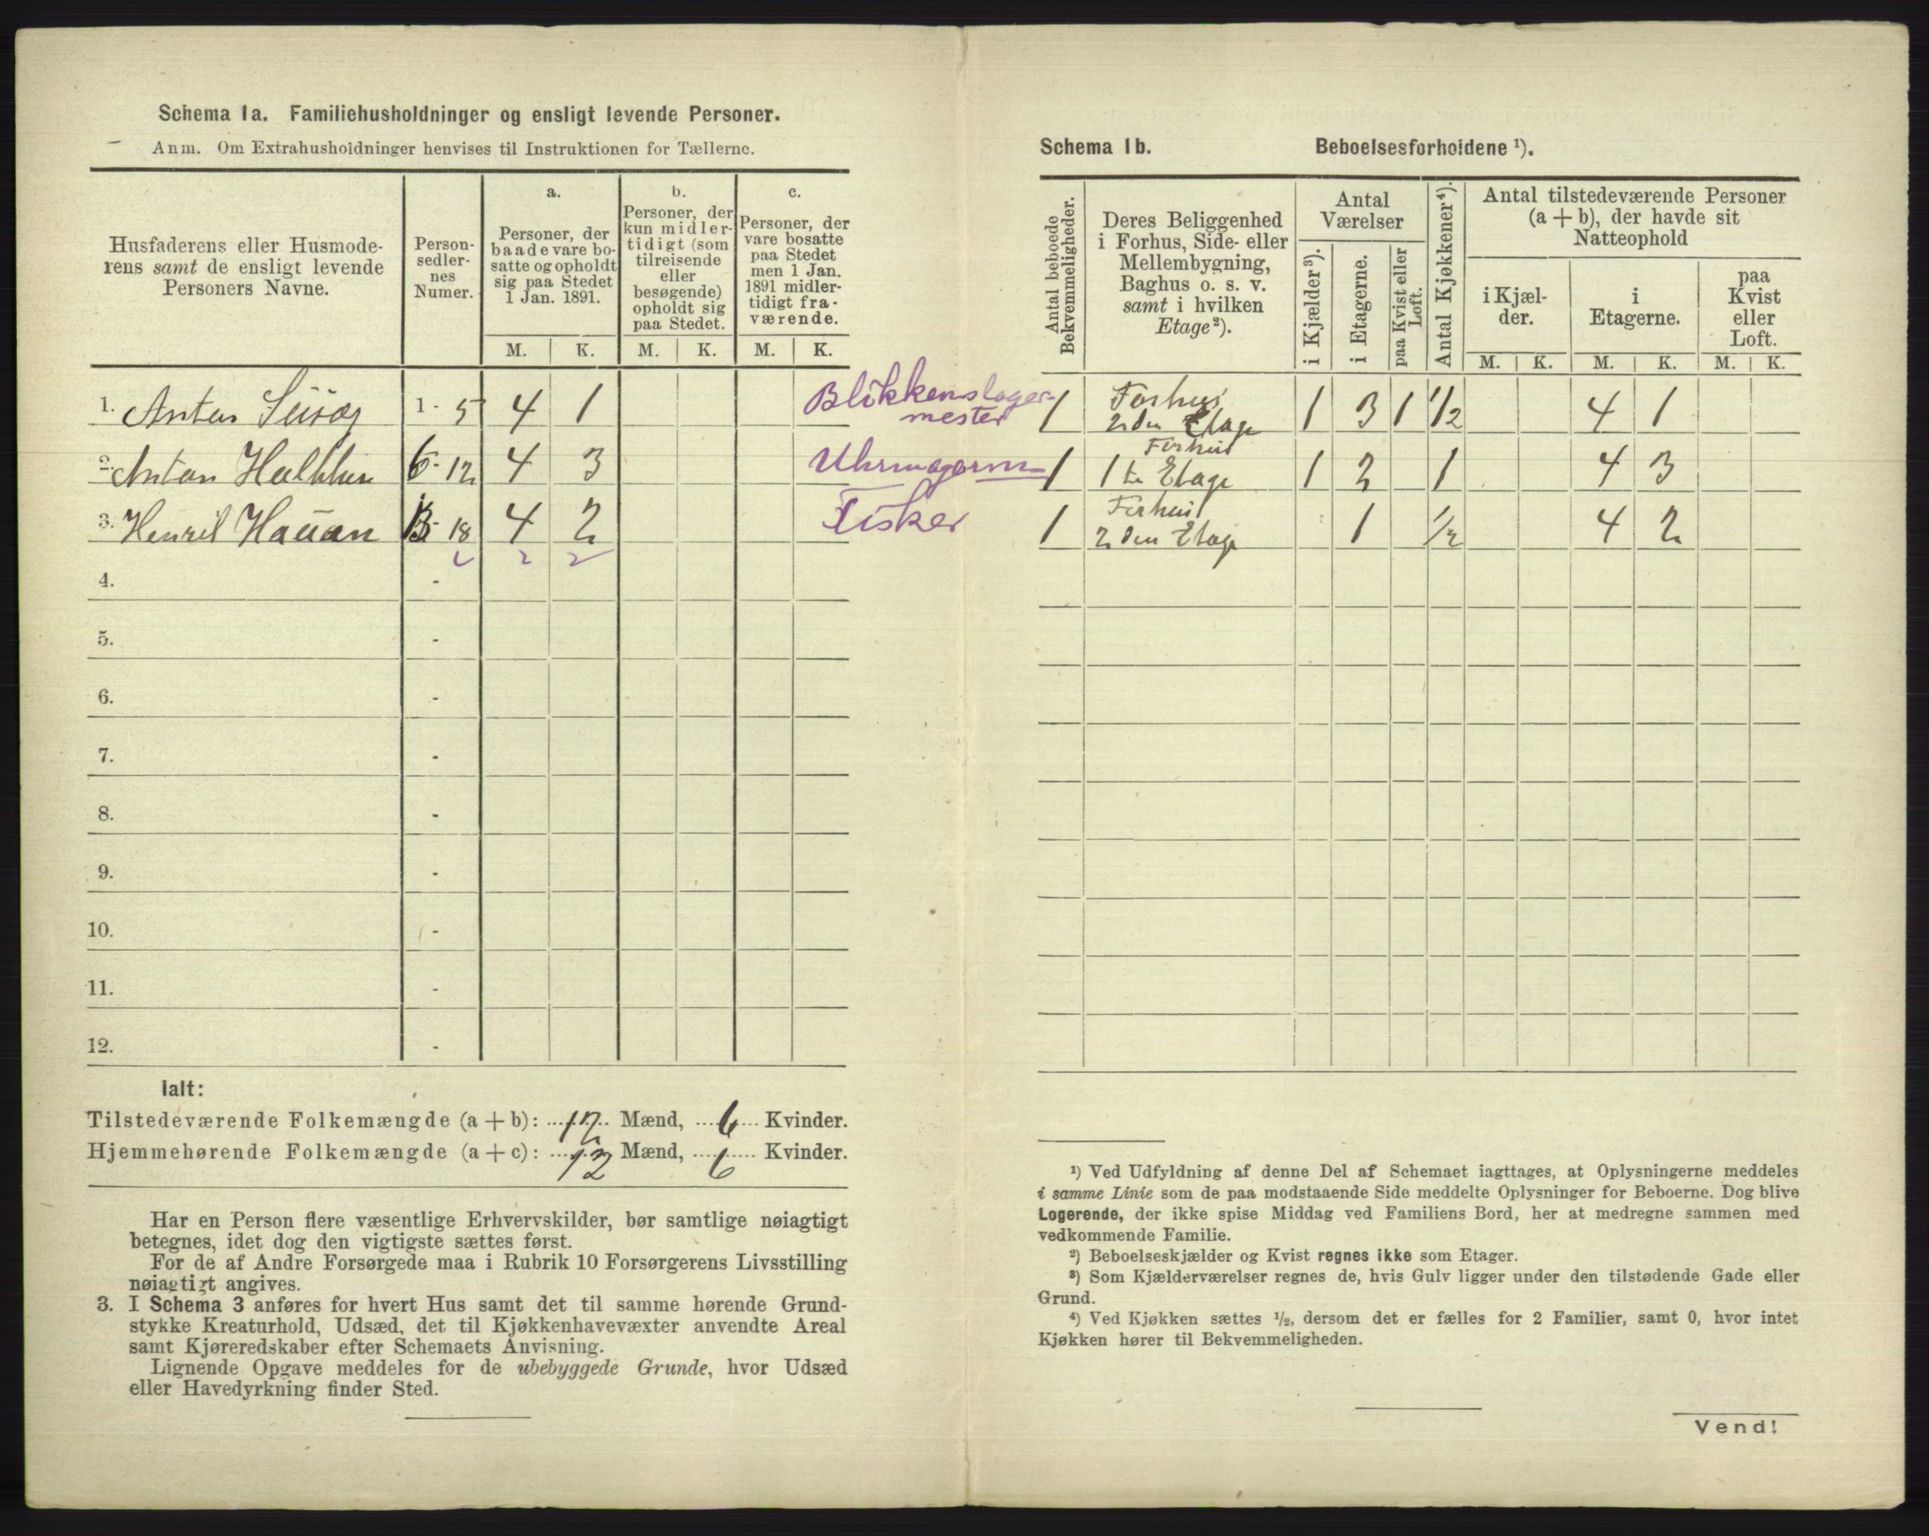 Schema 1a. Familiehusholdninger og ensligt levende Personer.
Anm. Om Extrahusholdninger henvises til Instruktionen for Tællerne.
Husfaderens eller Husmode-
rens samt de ensligt levende
Personers Navne.
Person-
sedler-
nes
Numer.
a.
Personer, der
baade vare bo-
satte og opholdt
sig paa Stedet
1 Jan. 1891.
b.
Personer, der
kun midler-
tidigt (som
tilreisende
eller
besøgende)
opholdt sig
paa Stedet.
c.
Personer, der
vare bosatte
paa Stedet
men 1 Jan.
1891 midler-
tidigt fra-
værende.
M. K. M. K. M. K.
1. Anton 1 - 5 4 1 Blikkenslager-
mester
2. Anton 6 - 12 4 3 Uhrmagerm
3. Henrik Hauan 13 - 18 4 2 Fisker
4. -
5. -
6. -
7. -
8. -
9. -
10. -
11. -
12. -
Ialt:
Tilstedeværende Folkemængde (a + b): 12 Mænd, 6 Kvinder.
Hjemmehørende Folkemængde (a + c): 12 Mænd, 6 Kvinder.
Har en Person flere væsentlige Erhvervskilder, bør samtlige nøiagtigt
betegnes, idet dog den vigtigste sættes først.
For de af Andre Forsørgede maa i Rubrik 10 Forsørgerens Livsstilling
nøiagtigt angives.
3. I Schema 3 anføres for hvert Hus samt det til samme hørende Grund-
stykke Kreaturhold, Udsæd, det til Kjøkkenhavevæxter anvendte Areal
samt Kjøreredskaber efter Schemaets Anvisning.
Lignende Opgave meddeles for de ubebyggede Grunde, hvor Udsæd
eller Havedyrkning finder Sted.
Schema 1b. Beboelsesforholdene ¹).
Antal beboede
Bekvemmeligheder.
Deres Beliggenhed
i Forhus, Side- eller
Mellembygning,
Baghus o. s. v.
samt i hvilken
Etage ²).
Antal
Værelser
i Kjælder ³).
i Etagerne.
paa Kvist eller
Loft.
Antal Kjøkkener ⁴).
Antal tilstedeværende Personer
(a + b), der havde sit
Natteophold
i Kjæl-
der.
i
Etagerne.
paa
Kvist
eller
Loft.
M. K. M. K. M. K.
1 Forhus
2den Etage 1 3 1 1/2 4 1
1 Forhus
1te Etage 1 2 1 4 3
1 Forhus
2den Etage 1 1/2 4 2
¹) Ved Udfyldning af denne Del af Schemaet iagttages, at Oplysningerne meddeles
i samme Linie som de paa modstaaende Side meddelte Oplysninger for Beboerne. Dog blive
Logerende, der ikke spise Middag ved Familiens Bord, her at medregne sammen med
vedkommende Familie.
²) Beboelseskjælder og Kvist regnes ikke som Etager.
³) Som Kjælderværelser regnes de, hvis Gulv ligger under den tilstødende Gade eller
Grund.
⁴) Ved Kjøkken sættes ½, dersom det er fælles for 2 Familier, samt 0, hvor intet
Kjøkken hører til Bekvemmeligheden.
Vend!